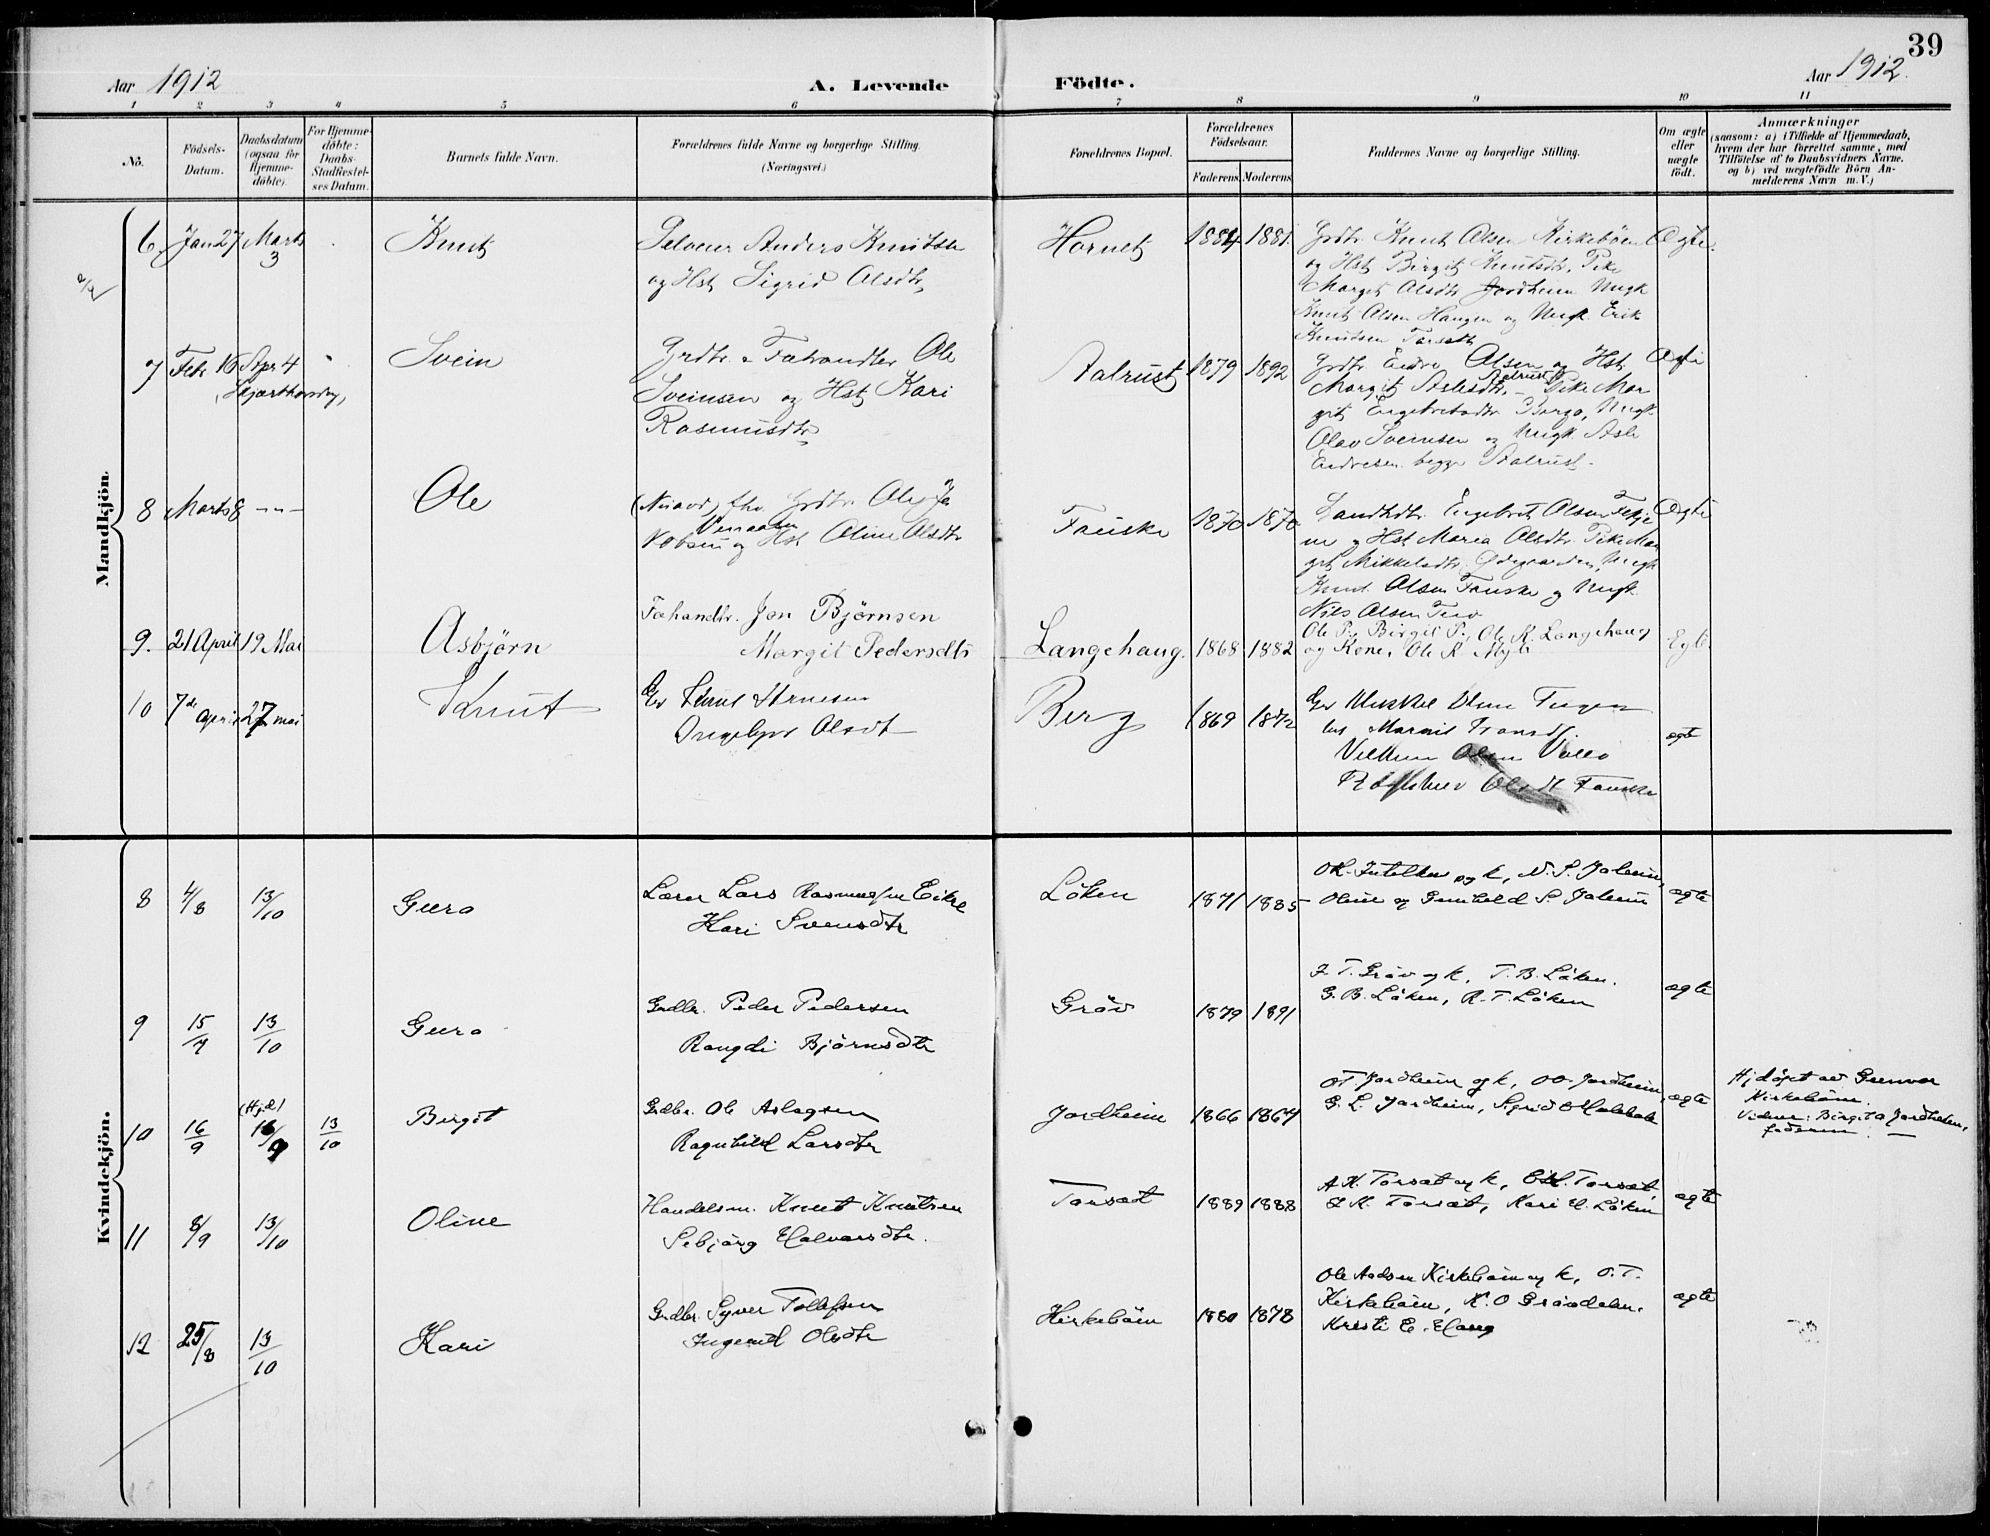 39
Aar 1912
A. Levende Födte.
Aar 1912.
1 2 3 4 5 6 7 8 9 10 11
No.
Födsels-
Datum.
Daabsdatum
(ogsaa for
Hjemme-
döbte).
For Hjemme-
döbte:
Daabs-
Stadfæstel-
ses Datum.
Barnets fulde Navn.
Forældrenes fulde Navne og borgerlige Stilling.
(Næringsvei.)
Forældrenes Bopæl.
Forældrenes
Födselsaar.
Faderens Moderens
Faddernes Navne og borgerlige Stilling.
Om ægte
eller
uægte
födt.
Anmærkninger
(saasom: a) i Tilfælde af Hjemmedaab,
hvem der har forrettet samme, med
Tilföielse af to Daabsvidners Navne.
og b) ved uægtefödte Börn An-
melderens Navn m. V.)
Mandkjön.
6 Jan 27 Marts
3
Knut
Anders Knutsen
og Hst Sigrid Olsdtr
Hornet
1884 1881.
Grdbr Knut Olsen Kirkebøen
og Hst Birgit Knutsdtr. Pike
Margit Olsdtr Jordheim Ungk
Knut Olsen Haugen og Ungk. Erik
Knutsen Torset
Ægte.
7 Febr 16 Apr 4
Svein
Grdbr. Ole
Sveinsen og Hst Kari
Rasmusdtr
Aalrust
1879 1892
Grdbr Endre Olsen og Hst
Margit Asledtr. Aalrust Pike Mar
git Engebretsdtr Ungk.
Olav Sveinsen og Ungk. Asle
Endresen begge Aalrust.
8 Marts 8 - - -
Ole
Grdbr. Ole Ja
kobsen og Hst Oline Olsdtr
Fauske
1870 1870
Engebret Olsen
og Hst Maria Olsdtr. Pike Mar
git Mikkelsdtr. Ødegaarden, Ungk
Knut Olsen Fauske og Ungk.
Nils Olsen
Ægte
9. 21 April 19 Mai
Asbjørn
Fahandlr. Jon Bjørnsen
Margit Pedersdtr
Langehaug.
1868 1882
Ole P., Birgit P., Ole K. Langehaug
og Kone, Ole K. Myli
10 7de April 27 mai
Knut
Knut
Ingeborg Olsdt
Berg
1869 1872
Margit
Vilhem Olsen
Olsdt Fauske
ægte
Kvindekjön.
8 4/8 13/10
Guro
Lærer Lars Rasmussen Eikre
Kari Svensdtr
Löken
1871 1885
og k, N. S.
Oline og Gunhild S.
ægte
9 15/7 13/10
Guro
Grdbr. Peder Pedersen
Rangdi Björnsdtr
Gröv
1879 1891
T. Gröv og k, T. B. Löken.
G. B. Löken, R. T. Löken
ægte
10 16/9 (Hjd) 16/9 13/10
Birgit
Grdbr. Ole Aslagsen
Ragnhild Larsdtr
Jordheim
1866 1864
O T. Jordheim og k, O O Jordheim,
G. L. Jordheim, Sigrid
ægte
Hjdöpt av Gunvor
Kirkeböen.
Vidner: Birgit Jordheim,
faderen. —
11 8/9 13/10
Oline
Handelsm. Knut Knutsen
Sebjörg Halvorsdtr.
Torset
1889 1888
A K. Torset og k, Torset
K. Torset, Kari H. Löken
ægte
12 25/8 13/10
Kari
Grdbr. Syver Tollefsen
Ingerid Olsdtr
Kirkeböen
1880 1878
Ole Aadsen Kirkeböen og k, O. T.
Kirkeböen, K. O Gröndalen.
Kristi E. Haug
ægte